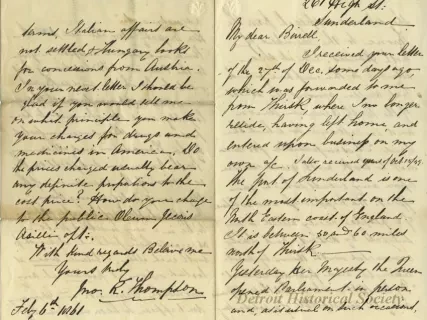 261 High St:
Sunderland
My dear Burdl.
I received your letter
of the 27th of Dec. some days ago,
which was forwarded to me
from Thirsk, where I no longer
reside, having left home, and
entered upon business on my
own a/c. I also received yours of Oct
The port of Sunderland is one
of the most important on the
North Eastern coast of England
It is between 50 and 60 miles
north of Thirsk
Yesterday Her Majesty the Queen
opened Parliament in person
and, as is usual on such occasions,
terms, Italian affairs are
not settled & Hungary looks
for concessions from Austria.
In your next letter I should be
glad if you would tell me
on what principle you make
your charges for drugs and
medicines in America, Do
the prices charged usually bear
any definite proportions to the
cost price? How do you charge
to the public Oleum Jecoris
Aselli
With kind regards Believe me
Yours truly
Jno R. Thompson
Feby 6th 1861
Detroit Historical Society